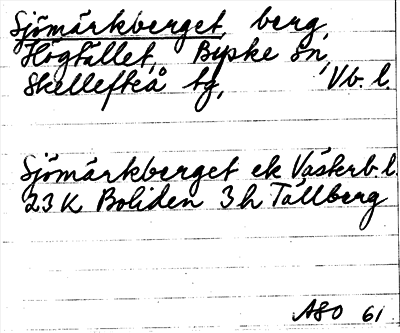 Sjömärkberget, berg,
Högfället, Byske sn,
Skellefteå tg, Vb. l.
Sjömärkberget ek Västerb. l.
23 K Boliden 3 h Tallberg
ASO 61